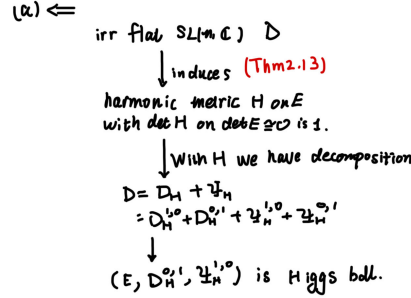 (a) ⇐
irr flat SL(n,ℂ) D
↓ induces (Thm2.13)
harmonic metric H on E
with det H on det E ≅ 𝒪 is 1.
↓ With H we have decomposition
D = D_H + Ψ_H
= D_H^{1,0} + D_H^{0,1} + Ψ_H^{1,0} + Ψ_H^{0,1}
↓
(E, D_H^{0,1}, Ψ_H^{1,0}) is Higgs bdl.